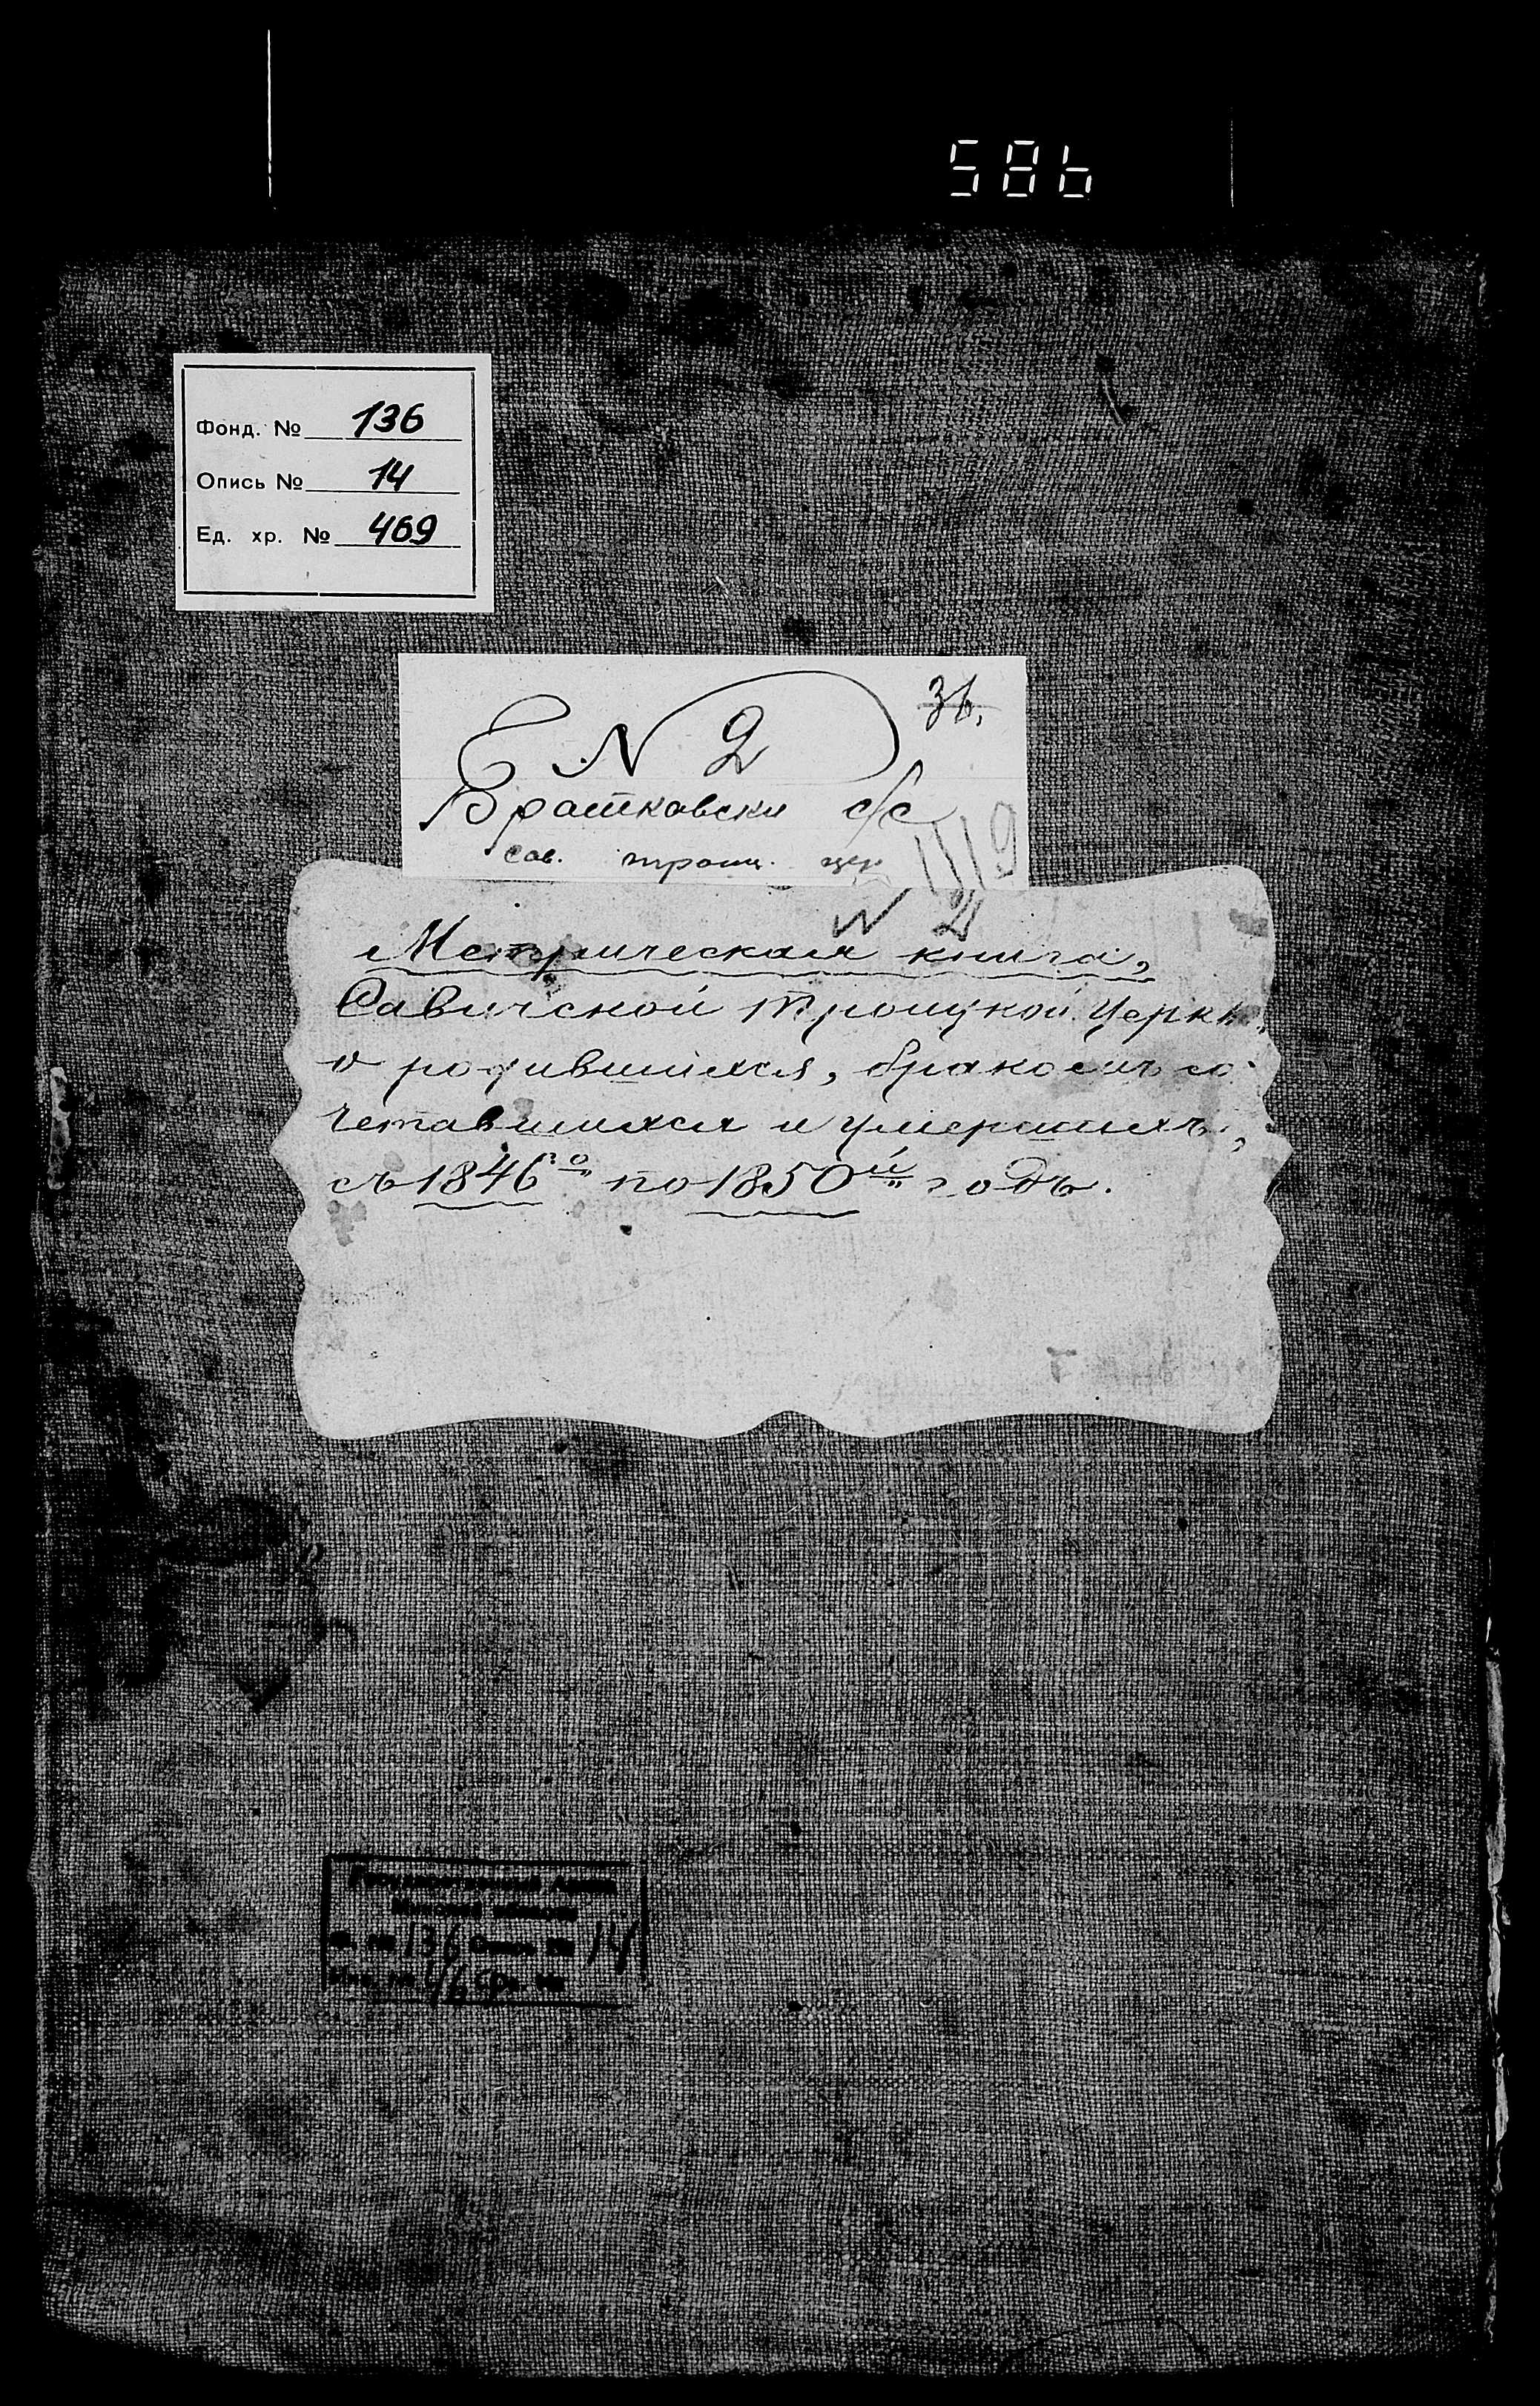 586
Фонд. № 136
Опись № 14
Ед. хр. № 469
36,
№ 2
Братковски с/с
сав. троиц. цер.
1119
№ 2
Метрическая книга,
Савичской Троицкой Церкви,
о родившихся, бракосъ со-
четавшихся и умершихъ,
съ 1846го по 1850й годъ.
Государственный Архив
Минской области
Ф. № 136 Опись № 14